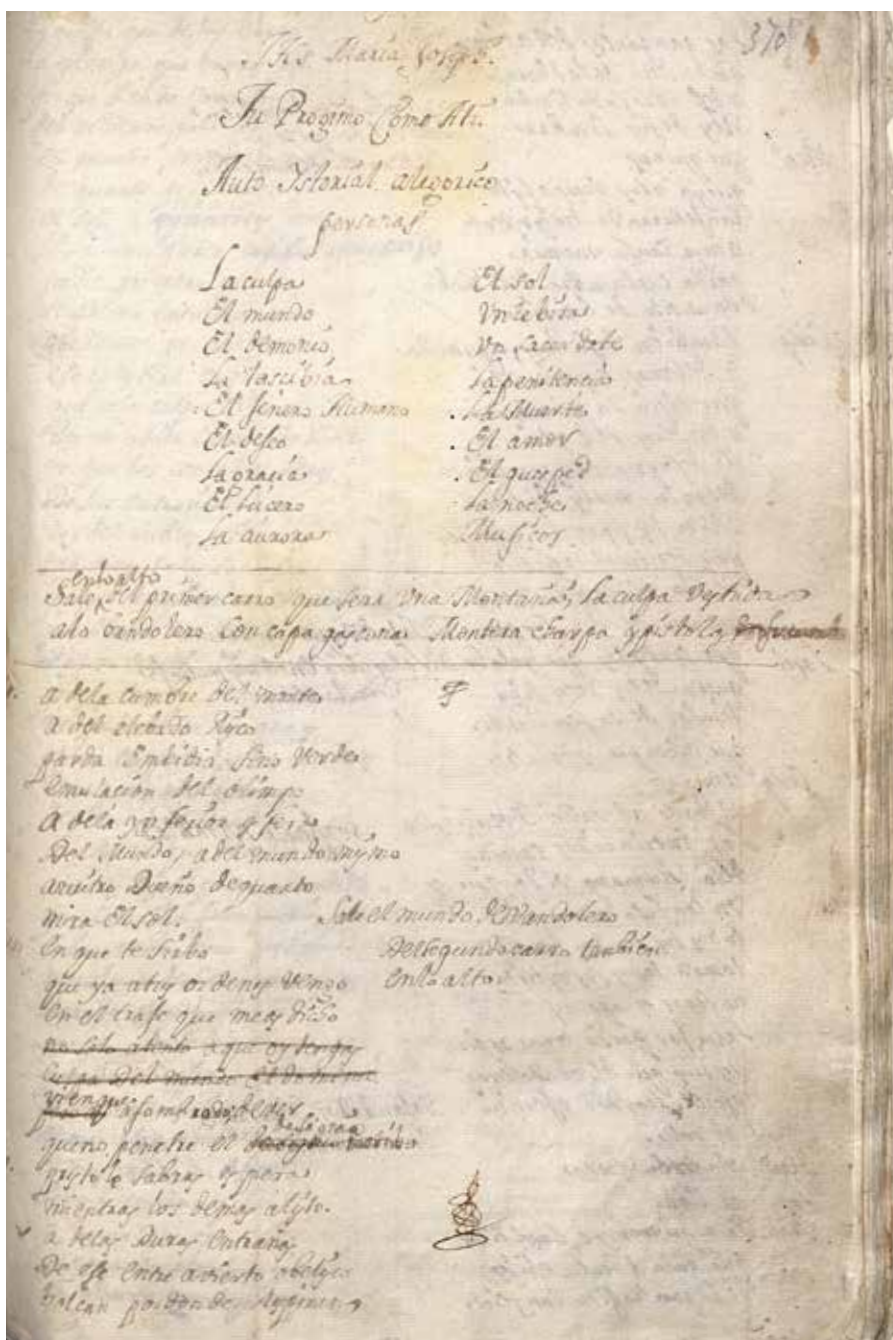 370
Jhs Maria Joseph.
Tu Progimo Como Ati.
Auto Ystorial alegorico
personas
La culpa
El mundo
El demonio
La lascibia
El jenero Humano
El deseo
La gracia
El lucero
La aurora
El sol
Un lebita
Un sacerdote
La penitencia
La Muerte
El amor
El guesped
La noche
Musicos
en lo alto
Sale del primer carro que sera una Montaña, La culpa vestida
a lo bandolero con capa gascona Montera charpa y pistolas
a dela cumbre del monte
a del elebado Risco
parda Embidia sino verde
emulacion del olimpo
A dela ynferior
Del Mundo, a del mundo mismo
arvitro Dueño de quanto
mira El sol. Sale el mundo de vandolero
en que te sirbo Del segundo carro tambien
que ya a tus ordenes vengo en lo alto
en el traje que me as dicho
no solo atento a que
culpa Del mundo el dominio
vien que asombrado de ver
que no penetre el
presto lo sabras espera
mientras los demas alisto.
a delas Duras Entrañas
De ese entre avierto obelisco
bolcan por donde